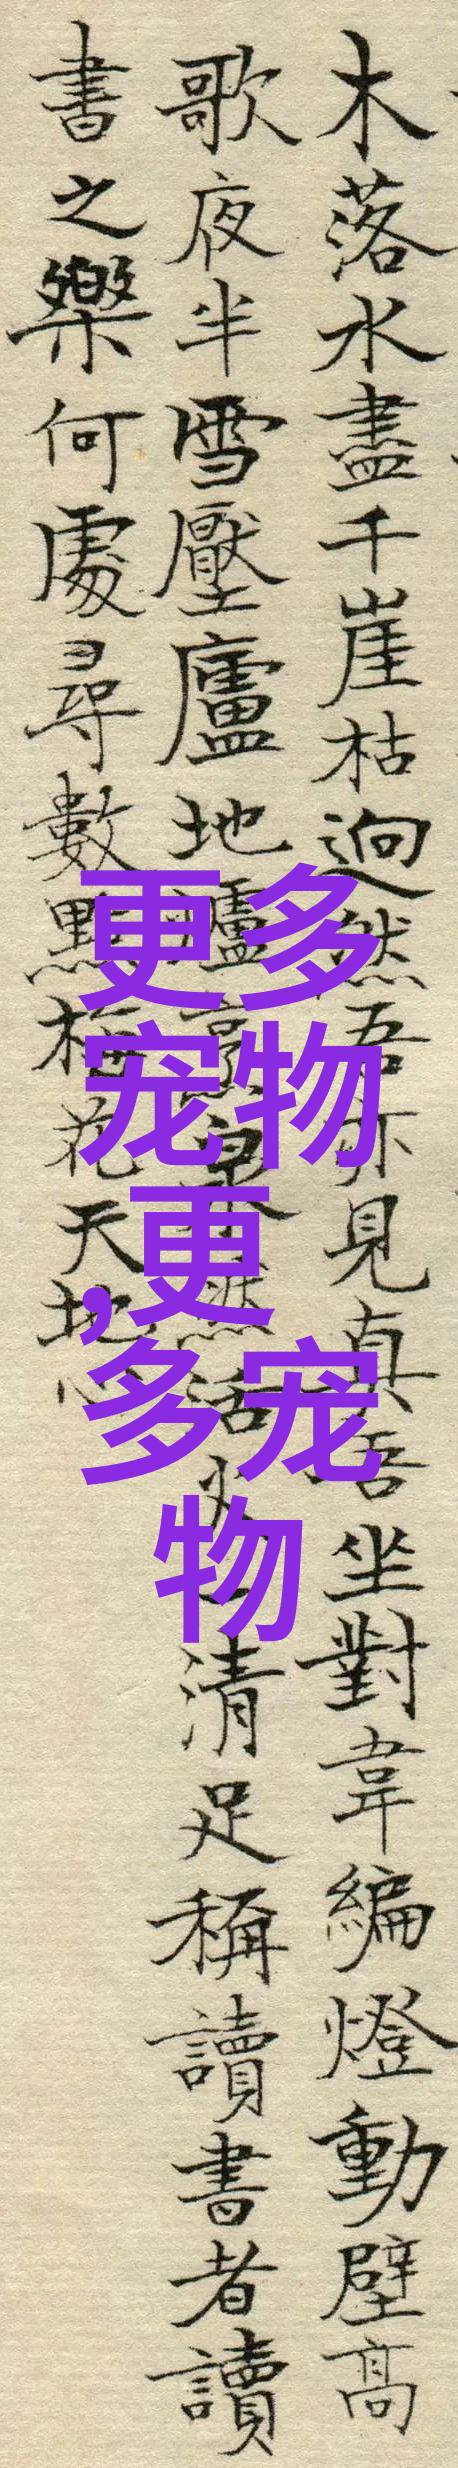 木落水盡千崖枯迥然吾亦見真吾坐對韋編燈動壁高
歌夜半雪壓廬地爐烹泉然活火一清足稱讀書者讀
書之樂何處尋數點梅花天地心
更多
宠物
,更
多宠
物